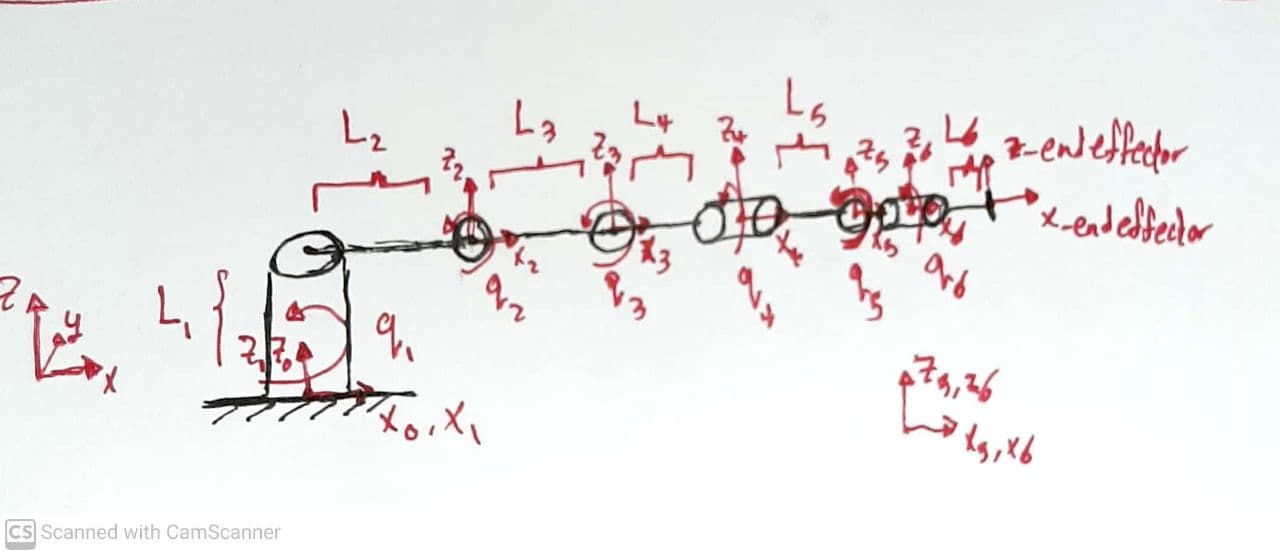 L2
L3
L4
L5
L6
z2
z3
z4
z5
z6
z-endeffector
x-endeffector
x2
x3
x4
x5
x6
q2
q3
q4
q5
q6
z
y
x
L1
z1
z0
q1
x0, x1
z5, z6
x5, x6
CS Scanned with CamScanner